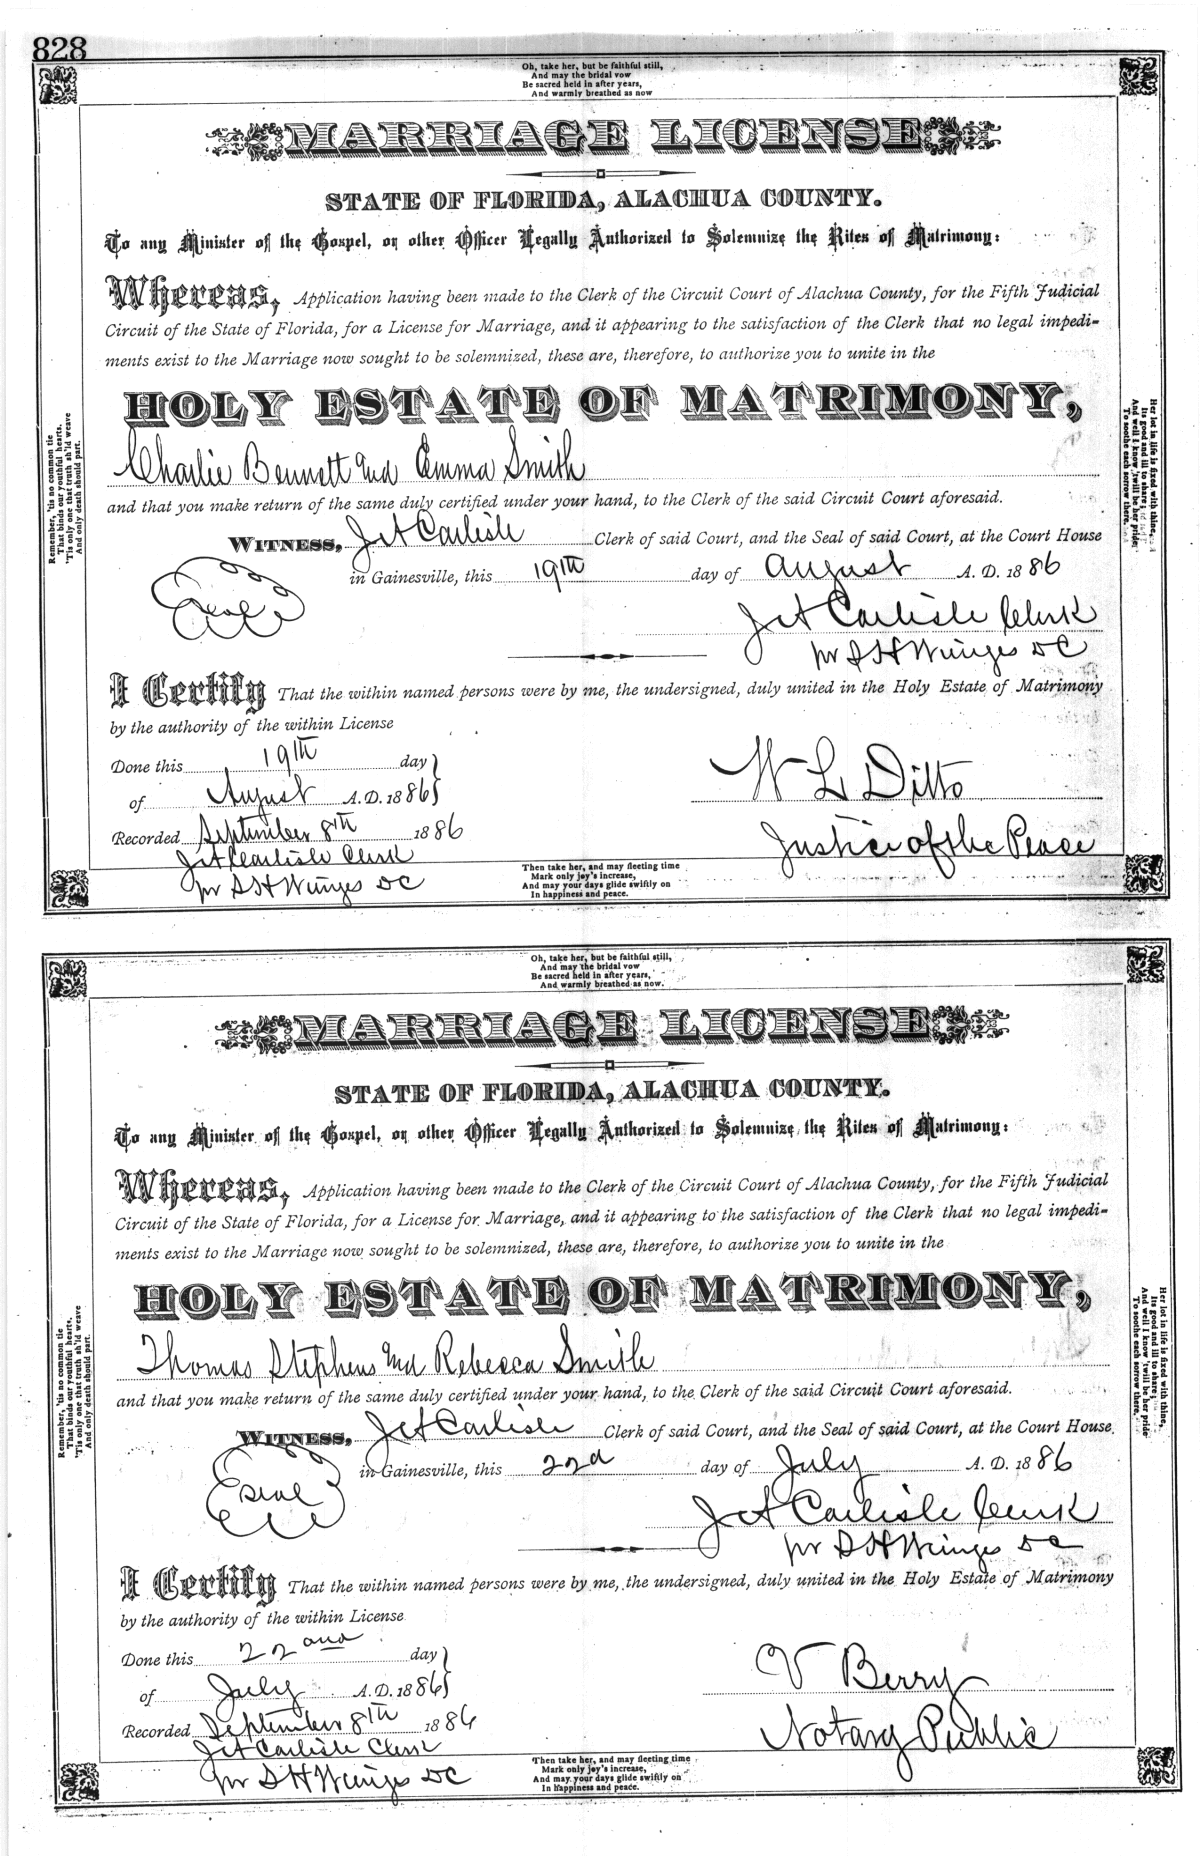 828
Oh, take her, but be faithful still,
And may the bridal vow
Be sacred held in after years,
And warmly breathed as now
MARRIAGE LICENSE
STATE OF FLORIDA, ALACHUA COUNTY.
To any Minister of the Gospel, or other Officer Legally Authorized to Solemnize the Rites of Matrimony:
Whereas, Application having been made to the Clerk of the Circuit Court of Alachua County, for the Fifth Judicial
Circuit of the State of Florida, for a License for Marriage, and it appearing to the satisfaction of the Clerk that no legal impedi-
ments exist to the Marriage now sought to be solemnized, these are, therefore, to authorize you to unite in the
HOLY ESTATE OF MATRIMONY,
Charlie Bennett and Emma Smith
and that you make return of the same duly certified under your hand, to the Clerk of the said Circuit Court aforesaid.
WITNESS, J A Carlisle Clerk of said Court, and the Seal of said Court, at the Court House
Seal
in Gainesville, this 19th day of August A. D. 1886
J A Carlisle Clerk
pr S H Wienges DC
I Certify That the within named persons were by me, the undersigned, duly united in the Holy Estate of Matrimony
by the authority of the within License
Done this 19th day
of August A. D. 1886
W L Ditto
Recorded September 8th 1886
Justice of the Peace
J A Carlisle Clerk
pr S H Wienges DC
Then take her, and may fleeting time
Mark only joy's increase,
And may your days glide swiftly on
In happiness and peace.
Remember, 'tis no common tie
That binds our youthful hearts,
'Tis only one that truth sh'ld weave
And only death should part.
Her lot in life is fixed with thine,
Its good and ill to share;
And well I know 'twill be her pride
To soothe each sorrow there.
Oh, take her, but be faithful still,
And may the bridal vow
Be sacred held in after years,
And warmly breathed as now.
MARRIAGE LICENSE
STATE OF FLORIDA, ALACHUA COUNTY.
To any Minister of the Gospel, or other Officer Legally Authorized to Solemnize the Rites of Matrimony:
Whereas, Application having been made to the Clerk of the Circuit Court of Alachua County, for the Fifth Judicial
Circuit of the State of Florida, for a License for Marriage, and it appearing to the satisfaction of the Clerk that no legal impedi-
ments exist to the Marriage now sought to be solemnized, these are, therefore, to authorize you to unite in the
HOLY ESTATE OF MATRIMONY,
Thomas Stephens and Rebecca Smith
and that you make return of the same duly certified under your hand, to the Clerk of the said Circuit Court aforesaid.
WITNESS, J A Carlisle Clerk of said Court, and the Seal of said Court, at the Court House
Seal
in Gainesville, this 22d day of July A. D. 1886
J A Carlisle Clerk
pr S H Wienges DC
I Certify That the within named persons were by me, the undersigned, duly united in the Holy Estate of Matrimony
by the authority of the within License
Done this 22nd day
of July A. D. 1886
V Berry
Recorded September 8th 1886
Notary Public
J A Carlisle Clerk
pr S H Wienges DC
Then take her, and may fleeting time
Mark only joy's increase,
And may your days glide swiftly on
In happiness and peace.
Remember, 'tis no common tie
That binds our youthful hearts,
'Tis only one that truth sh'ld weave
And only death should part.
Her lot in life is fixed with thine,
Its good and ill to share;
And well I know 'twill be her pride
To soothe each sorrow there.